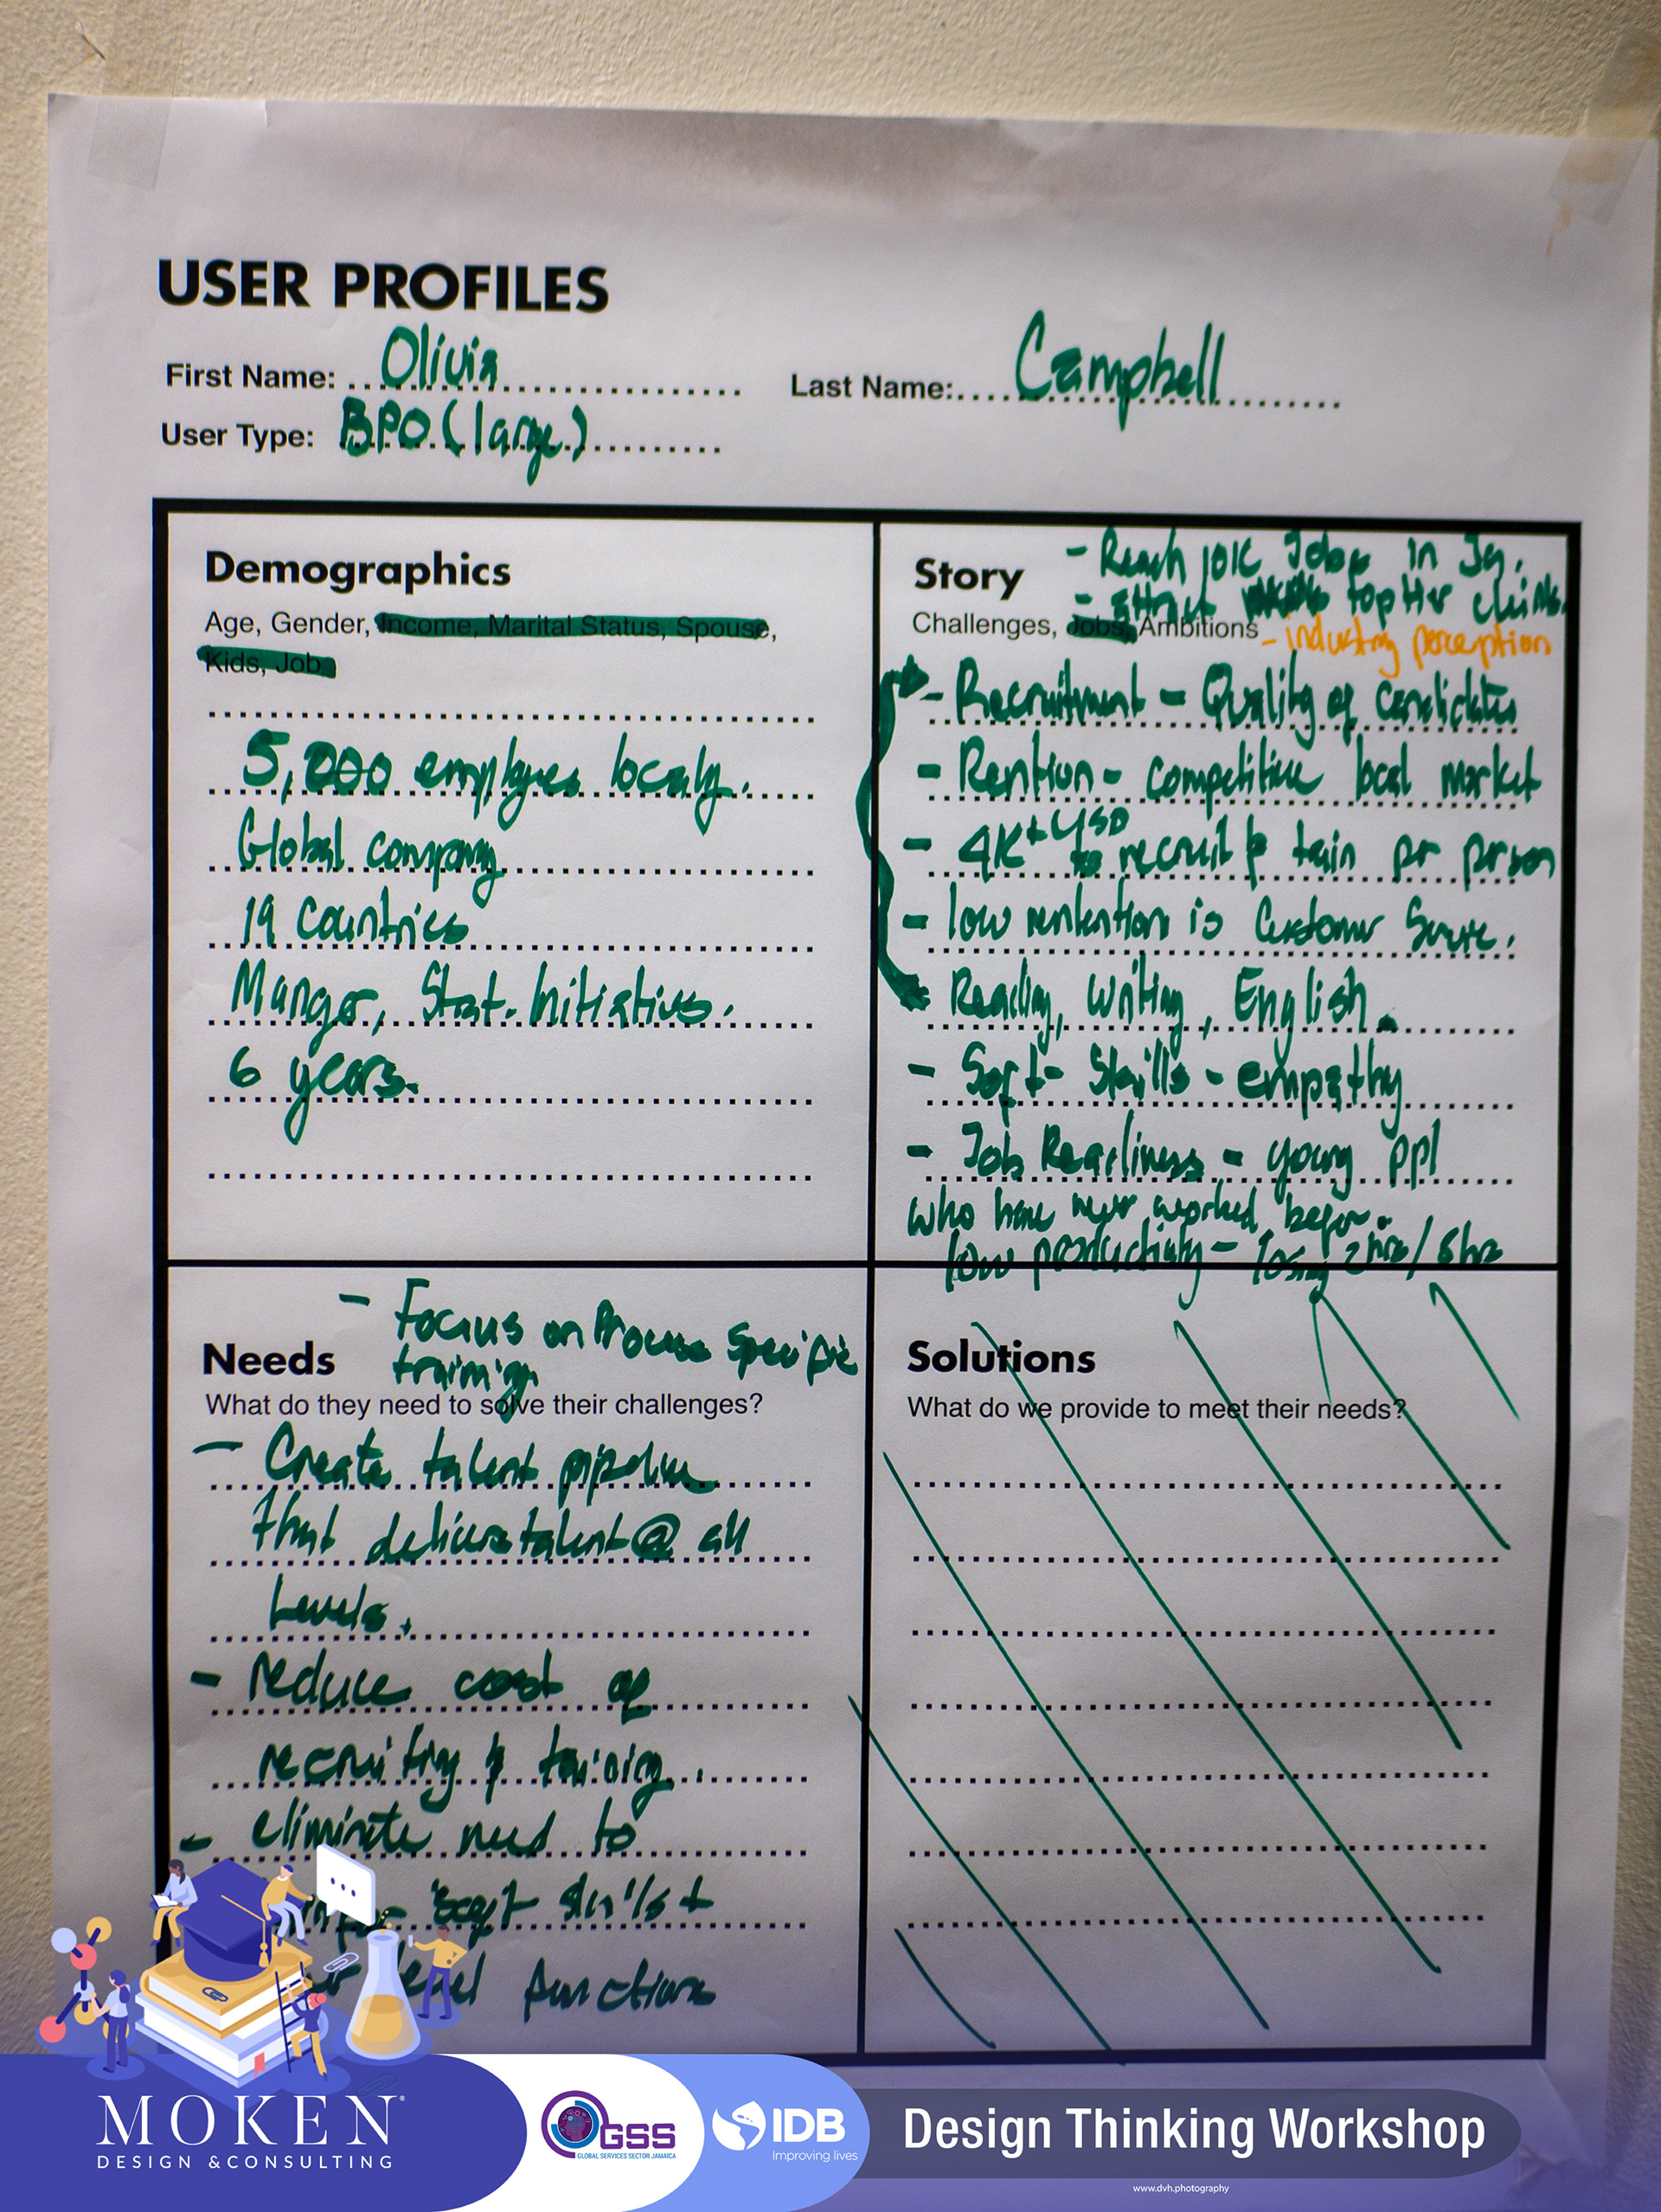 USER PROFILES
First Name: Olivia
Last Name: Campbell
User Type: BPO (large)
Demographics
Age, Gender, Income, Marital Status, Spouse,
Kids, Job
5,000 employees localy.
Global company
19 Countries
Manger, Strat. Initiatives.
6 years.
Story
- Reach 10K Jobs in Ja.
- attract top tier clients
Challenges, Jobs, Ambitions
- industry perception
- Recruitment - Quality of candidates
- Rention - competitive local market
- 4K+ USD to recruit & train pr person
- low rentention is Customer Servic.
- Reading, Writing, English.
- Soft- Skills - empathy
- Job Readiness - young ppl
who have never worked before.
low productivity - losing 2hrs/8hrs
Needs
- Focus on Process Specific
training
What do they need to solve their challenges?
- Create talent pipeline
that delivers talent @ all
Levels.
- reduce cost of
recruiting & training.
- eliminate need to
soft skills +
level functions
Solutions
What do we provide to meet their needs?
MOKEN®
DESIGN & CONSULTING
GSS
GLOBAL SERVICES SECTOR JAMAICA
IDB
Improving lives
Design Thinking Workshop
www.dvh.photography